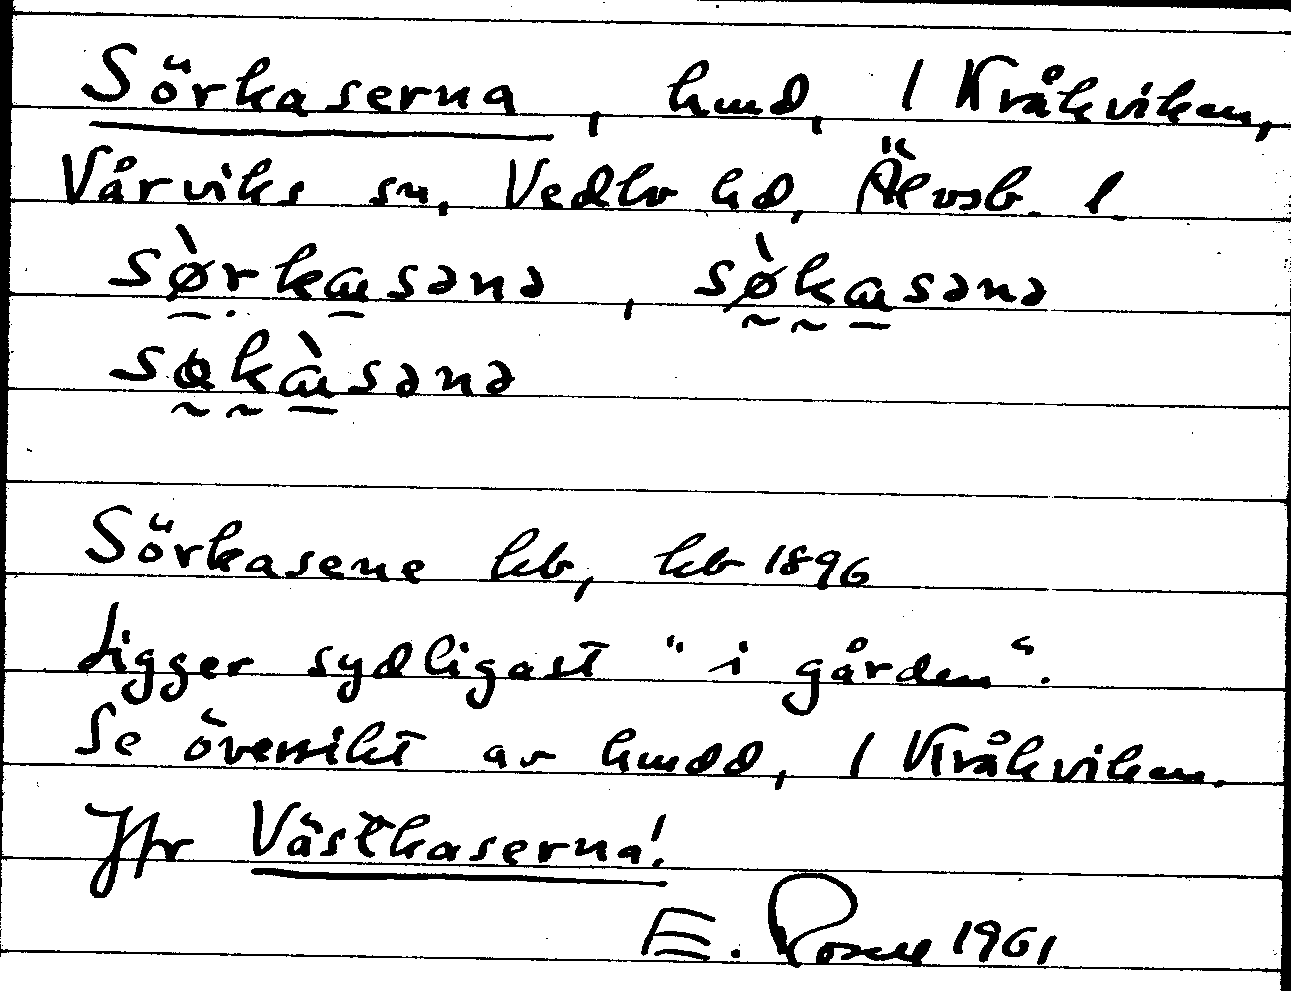 Sörkaserna, hmd, 1 Kråkviken,
Vårviks sn, Vedbo hd, Älvsb. l.
sø̀rkasənə, sø̀kasənə
søkàsənə
Sörkasene hb, kb 1896
Ligger sydligast "i gården".
Se översikt av hmdd, 1 Kråkviken.
Jfr Västkaserna!
E. Rosell 1961